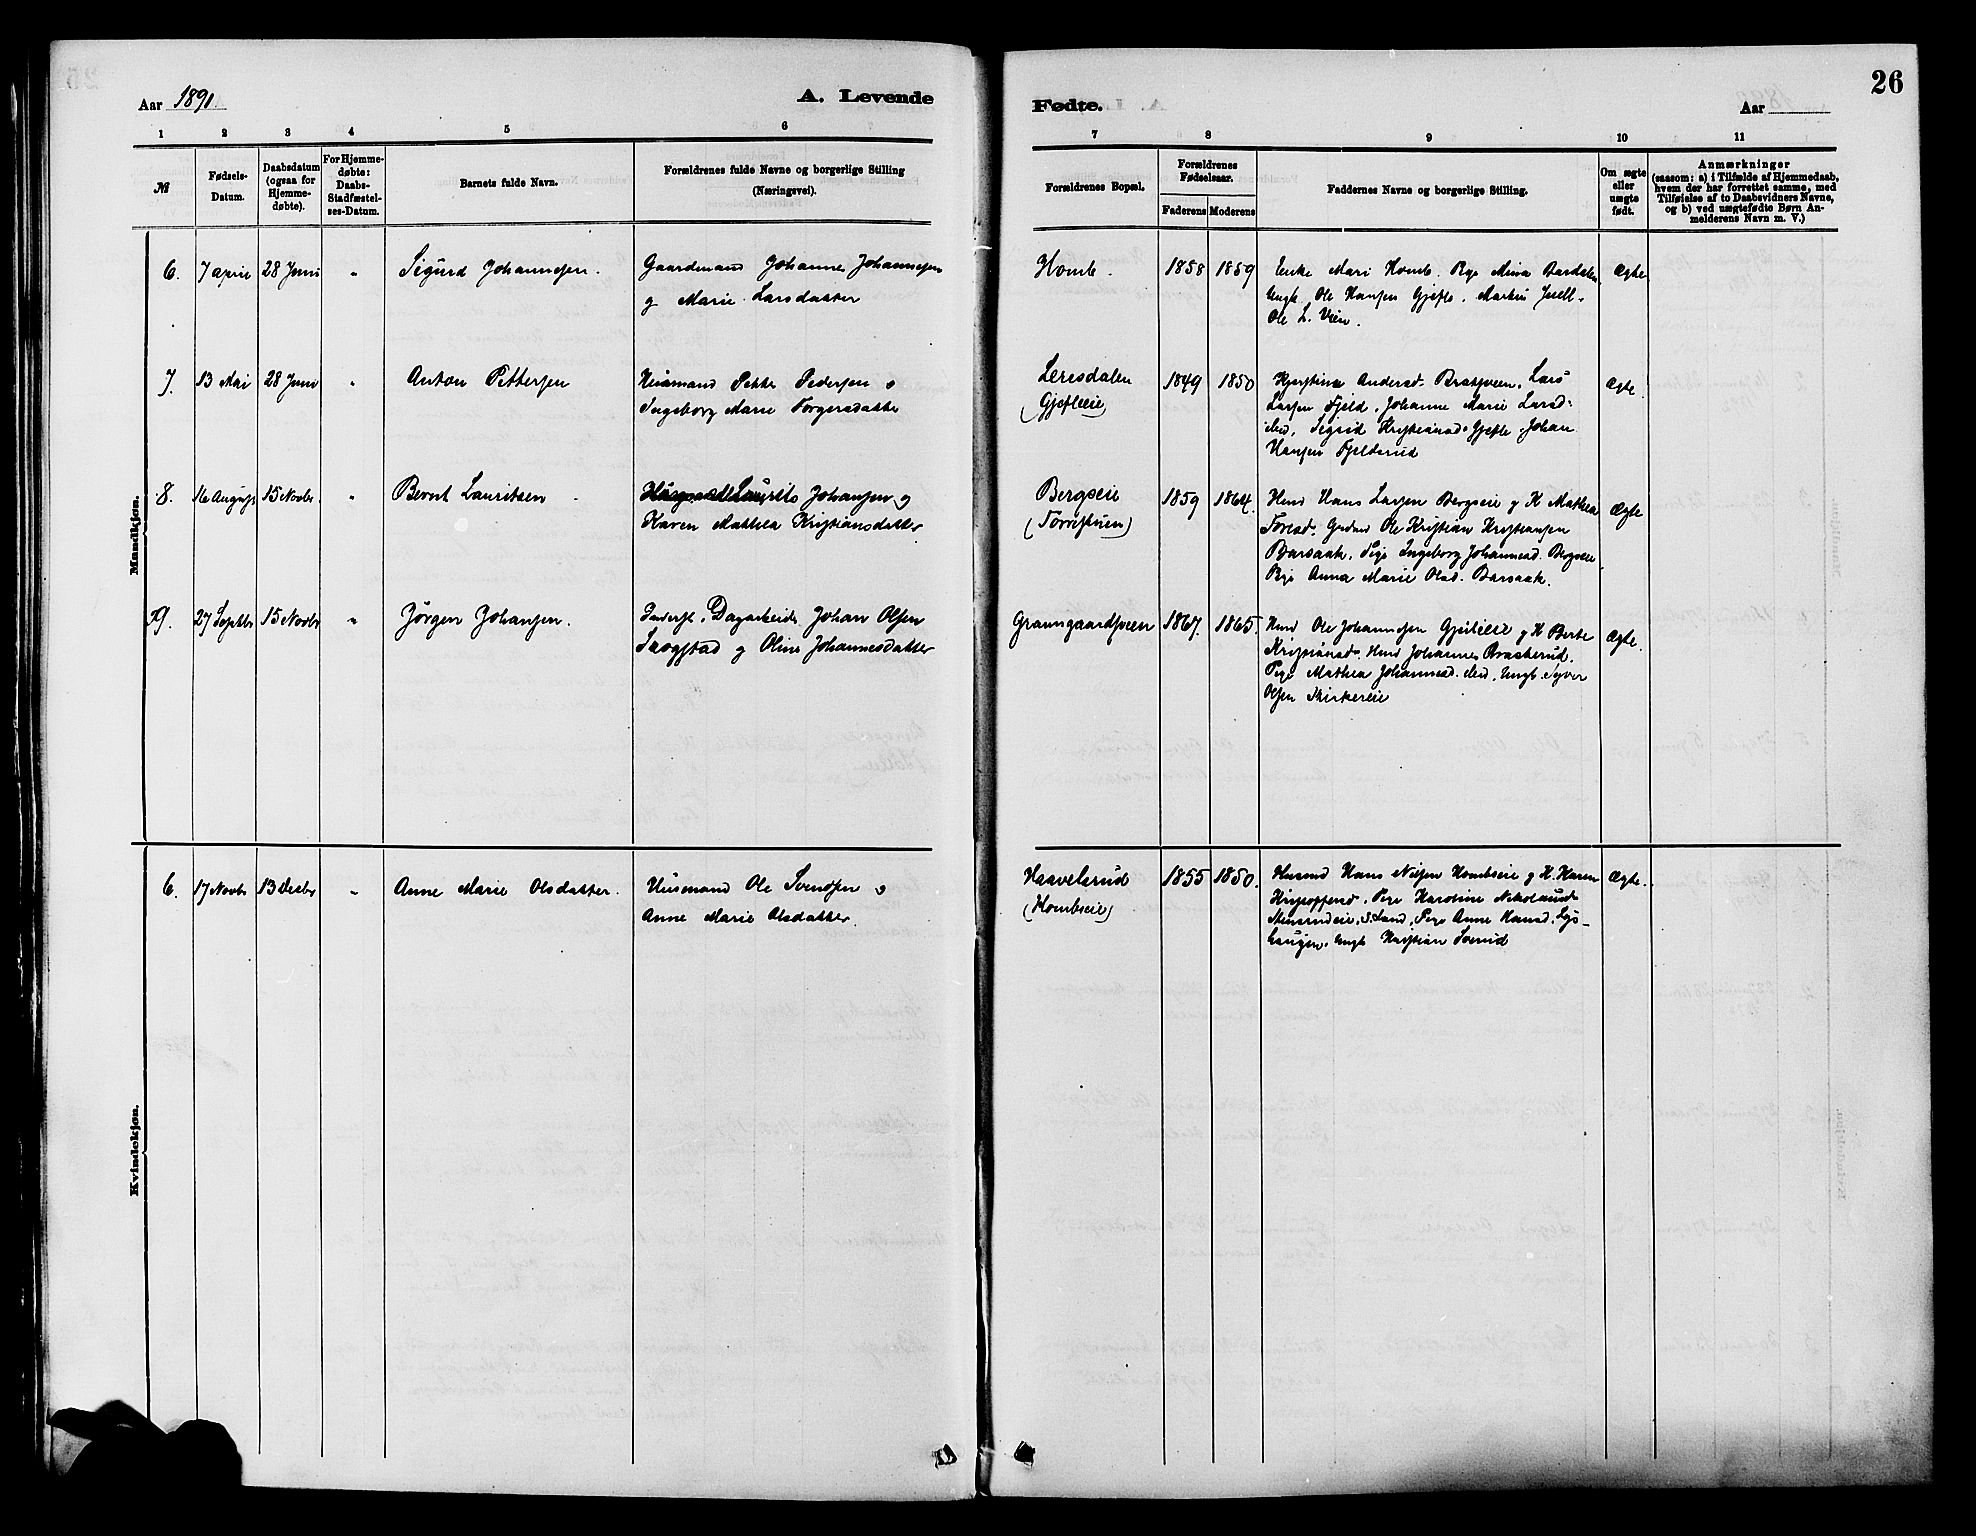 Aar 1891.
A. Levende
Fødte.
Aar
26
1 2 3 4 5 6 7 8 9 10 11
№
Fødsels-
Datum.
Daabsdatum
(ogsaa for
Hjemme-
døbte).
For Hjemme-
døbte:
Daabs-
Stadfæstel-
ses-Datum.
Barnets fulde Navn.
Forældrenes fulde Navne og borgerlige Stilling
(Næringsvei).
Forældrenes Bopæl.
Forældrenes
Fødselsaar.
Faderens Moderens
Faddernes Navne og borgerlige Stilling.
Om ægte
eller
uægte
født.
Anmærkninger
(saasom: a) i Tilfælde af Hjemmedaab,
hvem der har forrettet samme, med
Tilføielse af to Daabsvidners Navne,
og b) ved uægtefødte Børn An-
melderens Navn m. V.)
Mandkjøn.
6. 7 april 28 Juni " Sigurd Johannesen.
Gaardmand Johannes Johannesen
og Marie Larsdatter
Homb. 1858 1859
Enke Mari Homb. Pige Mina Bardalen
Ungk. Ole Hansen Gjefle. Martin
Ole L. Vien.
Ægte
7. 13 Mai 28 Juni " Anton Pettersen
Husmand Petter Pedersen o
Ingeborg Marie Torgersdatter
Leresdalen
(Gjefleeie)
1849 1850
Kjerstina Andersd. Bratsveen, Lars
Larsen Fjeld, Johanne Marie Larsd.
ibid, Sigrid Kristiansd. Gjefle. Johan
Hansen Fjeldsrud
Ægte
8. 16 August 15 Novbr. " Bernt Lauritsen
Laurits Johansen og
Karen Mathea Kristiansdatter
Bergseie
(Torristuen)
1859 1864.
Husmd Hans Larsen Bergseie og K Mathea
Toresd. Gaardmd Ole Kristian Kristiansen
Barsaak. Pige Ingeborg Johannesd. Bergseie
Pige Anna Marie Olsd. Barsaak.
Ægte
9. 27 Septbr 15 Novbr " Jørgen Johansen.
Inderst, Dagarbeider Johan Olsen
og Oline Johannesdatter
Graungaardsveen 1867. 1865.
Husmd Ole Johannesen og K Berte
Kristiansd. Husmd Johannes Braskerud.
Pige Mathea Johannesd. ibid, Ungk. Syver
Olsen
Ægte.
Kvindekjøn.
6. 17 Novbr 13 Decbr " Anne Marie Olsdatter.
Husmand Ole Svendsen o
Anne Marie Olsdatter
Haavelsrud
(Hombseie)
1855 1850.
Husmd Hans Nilsen Hombseie og K. Karen
Kristoffersd. Pige Karoline Nikolaisd.
S. Land, Pige Anne Hansd. Lys-
haugen. Ungk Kristian Sverud
Ægte.